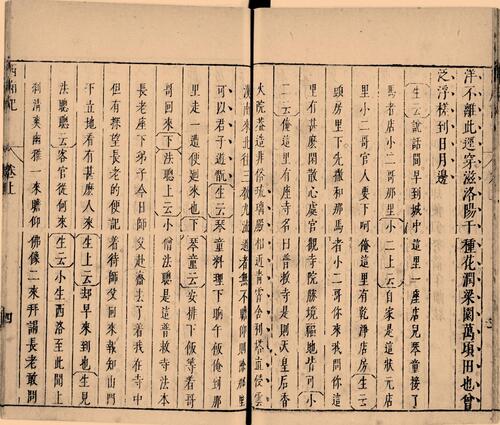 洋不離此逕穿滋洛陽千種花潤梁園萬項田也曾
泛浮槎到日月邊
生云說話間早到城中這里一座店兒琴童接了
馬者店小二哥那里小二上云自家是這狀元店
里小二哥官人要下呵俺這里有乾淨店房生云
頭房里下先撒和那馬者小二哥你來我問你這
里有甚麼閑散心處宮觀寺院勝境福地皆可小
二云俺這里有座寺名曰普救寺是則天皇后香
火院蓋造非俗琉璃殿相近青霄舍利塔直侵雲
漢南來北往三教九流過者無不瞻仰則除那里
可以君子遊翫生云琴童料理下晌午飯俺到那
里走一遭便迴來也下童云安排下飯等着哥
哥回來下法聰上云小僧法聰是這普救寺法本
長老座下弟子今日師父赴齋去了着我在寺中
但有探望長老的便記着待師父回來報知山門
下立地看有甚麼人來生上云却早來到也生見
法聰聰云客官從何來生云小生西洛至此聞上
刹清美幽雅一來瞻仰佛像二來拜謁長老敢問
西廂記 卷上 四